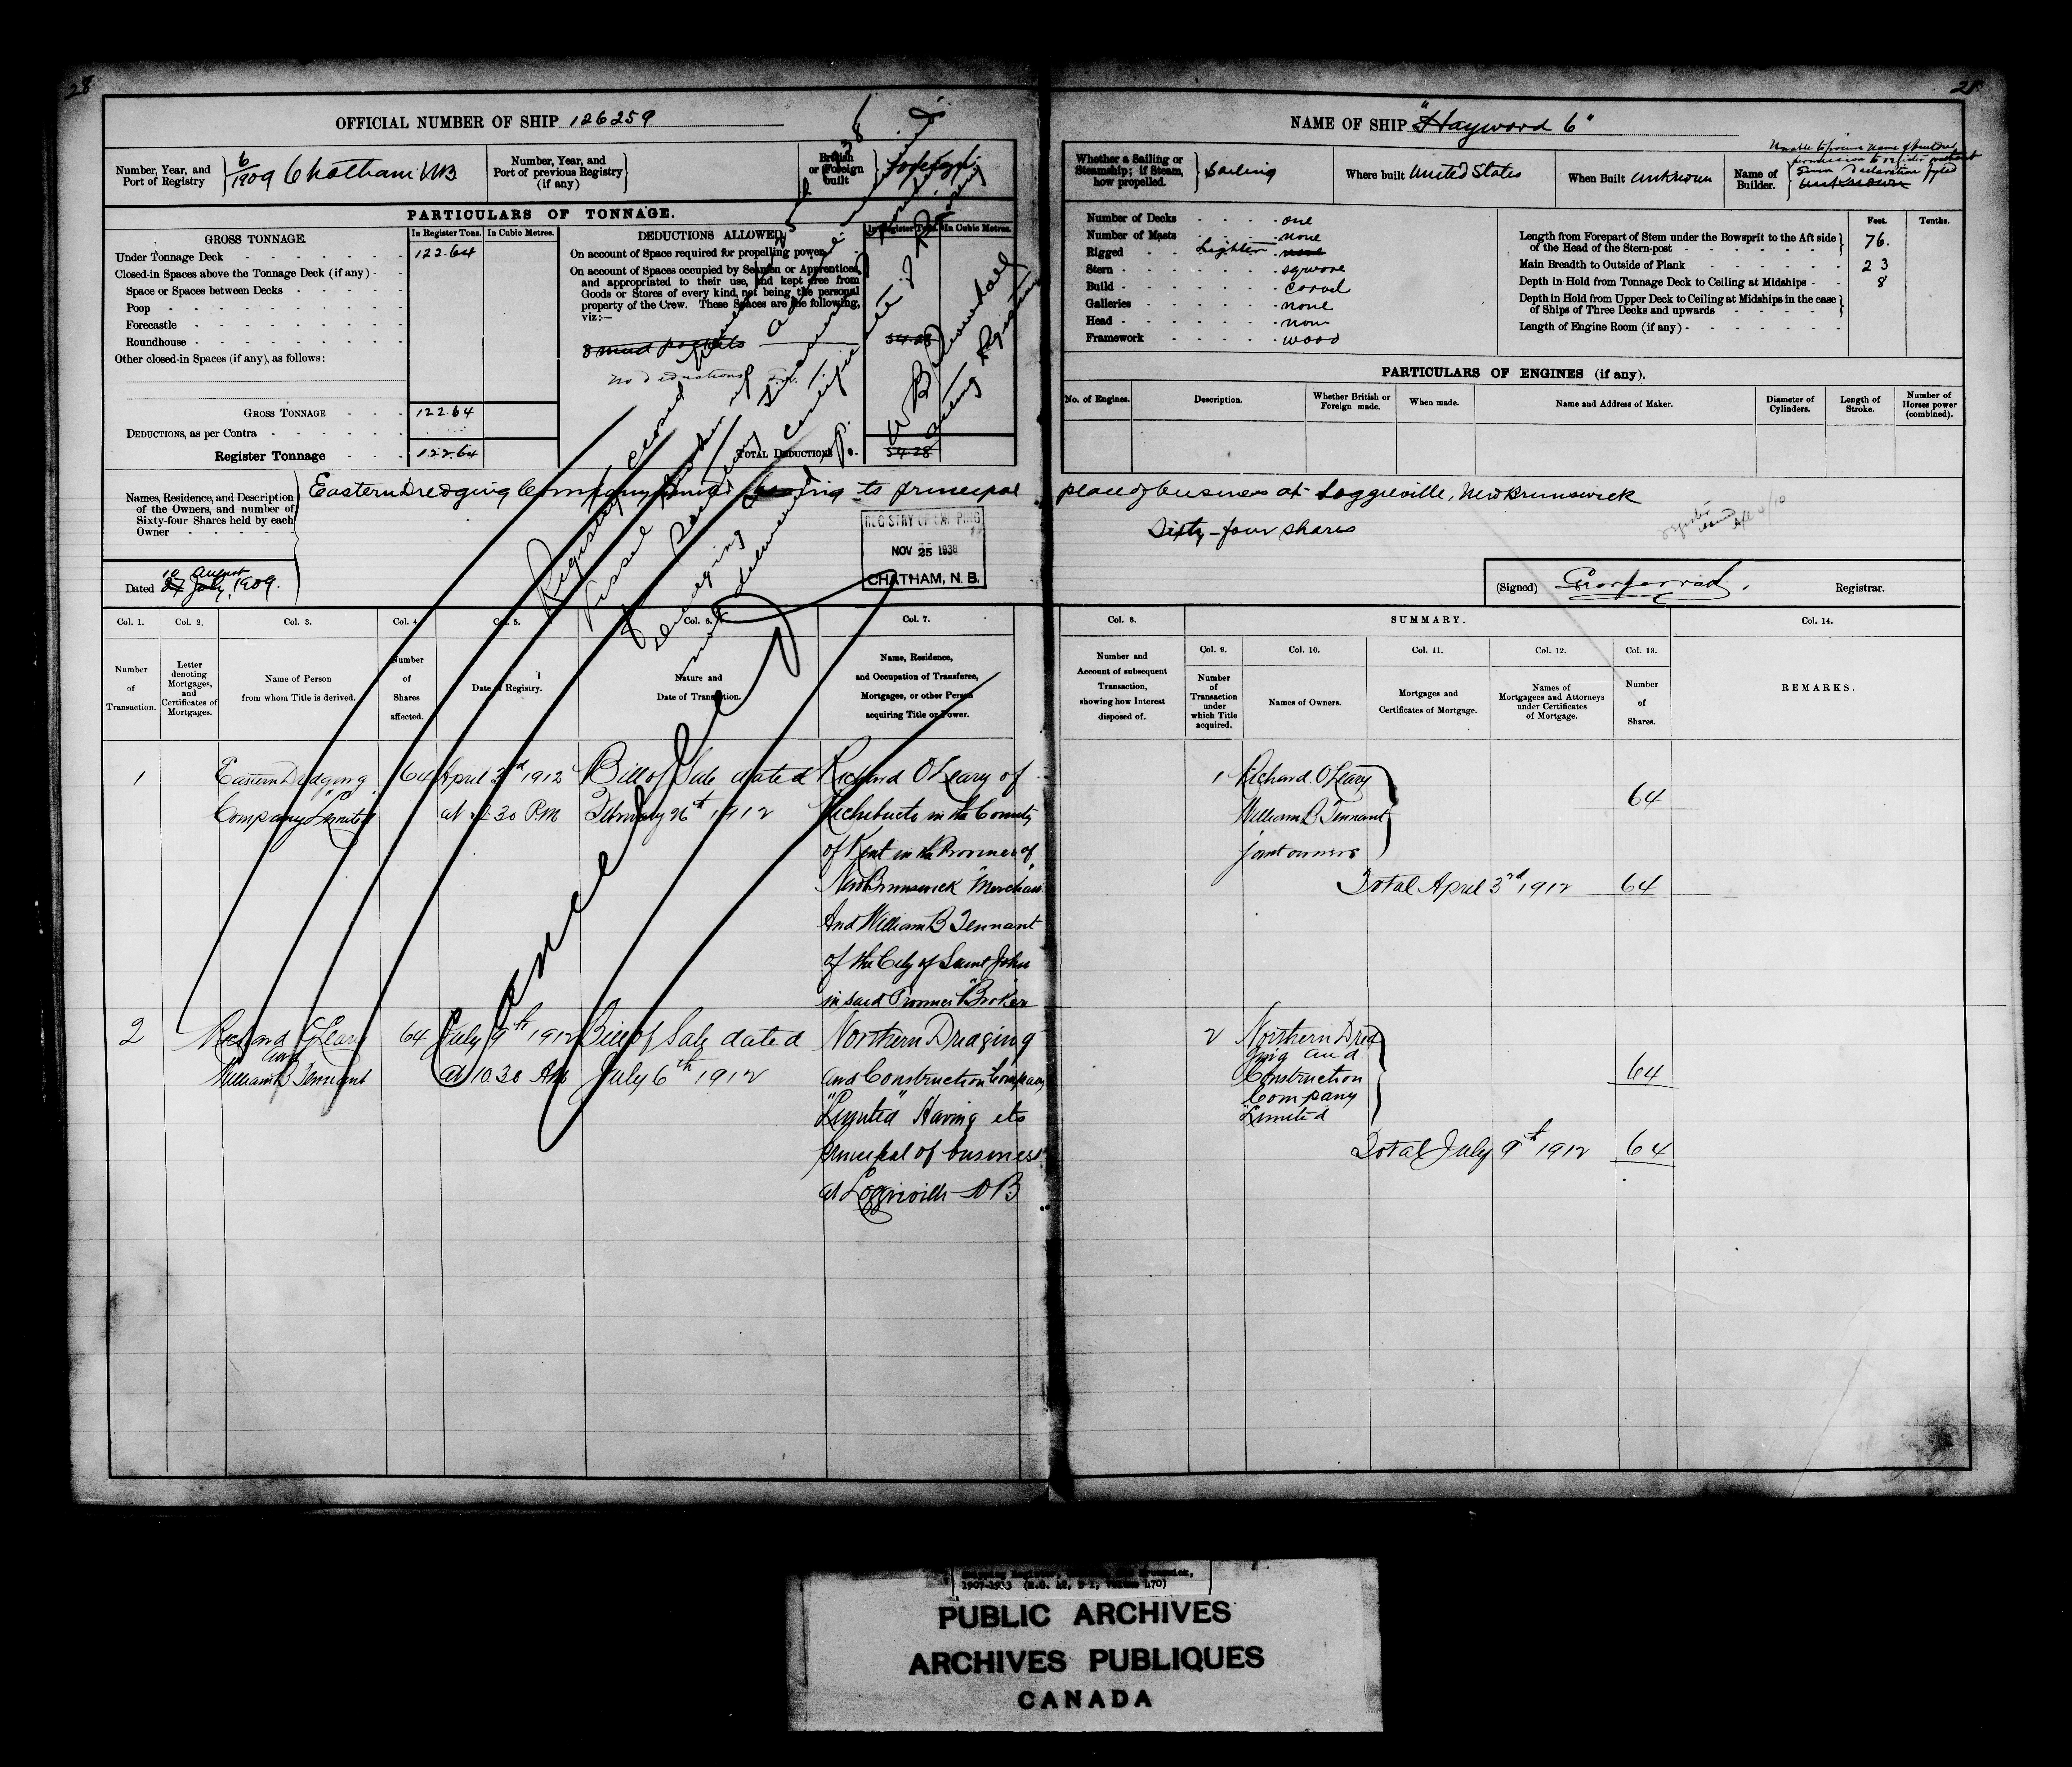 28
28
OFFICIAL NUMBER OF SHIP 126259
NAME OF SHIP "Hayward 6"
Number, Year, and Port of Registry
6/1909 Chatham NB
Number, Year, and Port of previous Registry (if any)
British or Foreign built
Foreign
Whether a Sailing or Steamship; if Steam, how propelled.
Sailing
Where built United States
When Built unknown
Name of Builder.
Unable to procure name of builder
permission to register without
given Declaration fyled
unknown
PARTICULARS OF TONNAGE.
GROSS TONNAGE.
In Register Tons.
In Cubic Metres.
Under Tonnage Deck 122.64
Closed-in Spaces above the Tonnage Deck (if any)
Space or Spaces between Decks
Poop
Forecastle
Roundhouse
Other closed-in Spaces (if any), as follows:
GROSS TONNAGE 122.64
DEDUCTIONS, as per Contra
Register Tonnage 122.64
DEDUCTIONS ALLOWED.
In Register Tons.
In Cubic Metres.
On account of Space required for propelling power
On account of Spaces occupied by Seamen or Apprentices,
and appropriated to their use, and kept free from
Goods or Stores of every kind, not being the personal
property of the Crew. These Spaces are the following,
viz:—
3 mud pockets 54.28
no deductions
TOTAL DEDUCTIONS 54.28
Number of Decks one
Number of Masts none
Rigged Lighter none
Stern square
Build carvel
Galleries none
Head none
Framework wood
Feet.
Tenths.
Length from Forepart of Stem under the Bowsprit to the Aft side of the Head of the Stern-post 76.
Main Breadth to Outside of Plank 23
Depth in Hold from Tonnage Deck to Ceiling at Midships 8
Depth in Hold from Upper Deck to Ceiling at Midships in the case of Ships of Three Decks and upwards
Length of Engine Room (if any)
PARTICULARS OF ENGINES (if any).
No. of Engines.
Description.
Whether British or Foreign made.
When made.
Name and Address of Maker.
Diameter of Cylinders.
Length of Stroke.
Number of Horses power (combined).
Names, Residence, and Description of the Owners, and number of Sixty-four Shares held by each Owner
Eastern Dredging Company Limited having its principal place of business at Loggieville, New Brunswick
Sixty-four shares
Dated 27 July 10 August 1909.
(Signed)
Registrar.
Registry closed
Vessel
W B
Acting Registrar
Cancelled
REGISTRY OF SHIPPING
NOV 25 1938
CHATHAM, N. B.
Col. 1.
Number of Transaction.
Col. 2.
Letter denoting Mortgages, and Certificates of Mortgages.
Col. 3.
Name of Person from whom Title is derived.
Col. 4.
Number of Shares affected.
Col. 5.
Date of Registry.
Col. 6.
Nature and Date of Transaction.
Col. 7.
Name, Residence, and Occupation of Transferee, Mortgagee, or other Person acquiring Title or Power.
Col. 8.
Number and Account of subsequent Transaction, showing how Interest disposed of.
SUMMARY.
Col. 9.
Number of Transaction under which Title acquired.
Col. 10.
Names of Owners.
Col. 11.
Mortgages and Certificates of Mortgage.
Col. 12.
Names of Mortgagees and Attorneys under Certificates of Mortgage.
Col. 13.
Number of Shares.
Col. 14.
REMARKS.
1
Eastern Dredging
Company "Limited"
64
April 3rd 1912
at 2.30 P.M
Bill of Sale dated
February 26th 1912
Richard O'Leary of
Richibucto in the County
of Kent in the Province of
New Brunswick "Merchant"
And William B Tennant
of the City of Saint John
in said Province "Broker"
1 Richard O'Leary
William B Tennant
joint owners
64
Total April 3rd 1912 64
2
Richard O'Leary
and
William B Tennant
64
July 9th 1912
at 10.30 AM
Bill of Sale dated
July 6th 1912
Northern Dredging
and Construction Company
"Limited" Having its
principal of business
at Loggieville NB
2 Northern Dred
ging and
Construction
Company
"Limited
64
Total July 9th 1912 64
1907-1913
PUBLIC ARCHIVES
ARCHIVES PUBLIQUES
CANADA